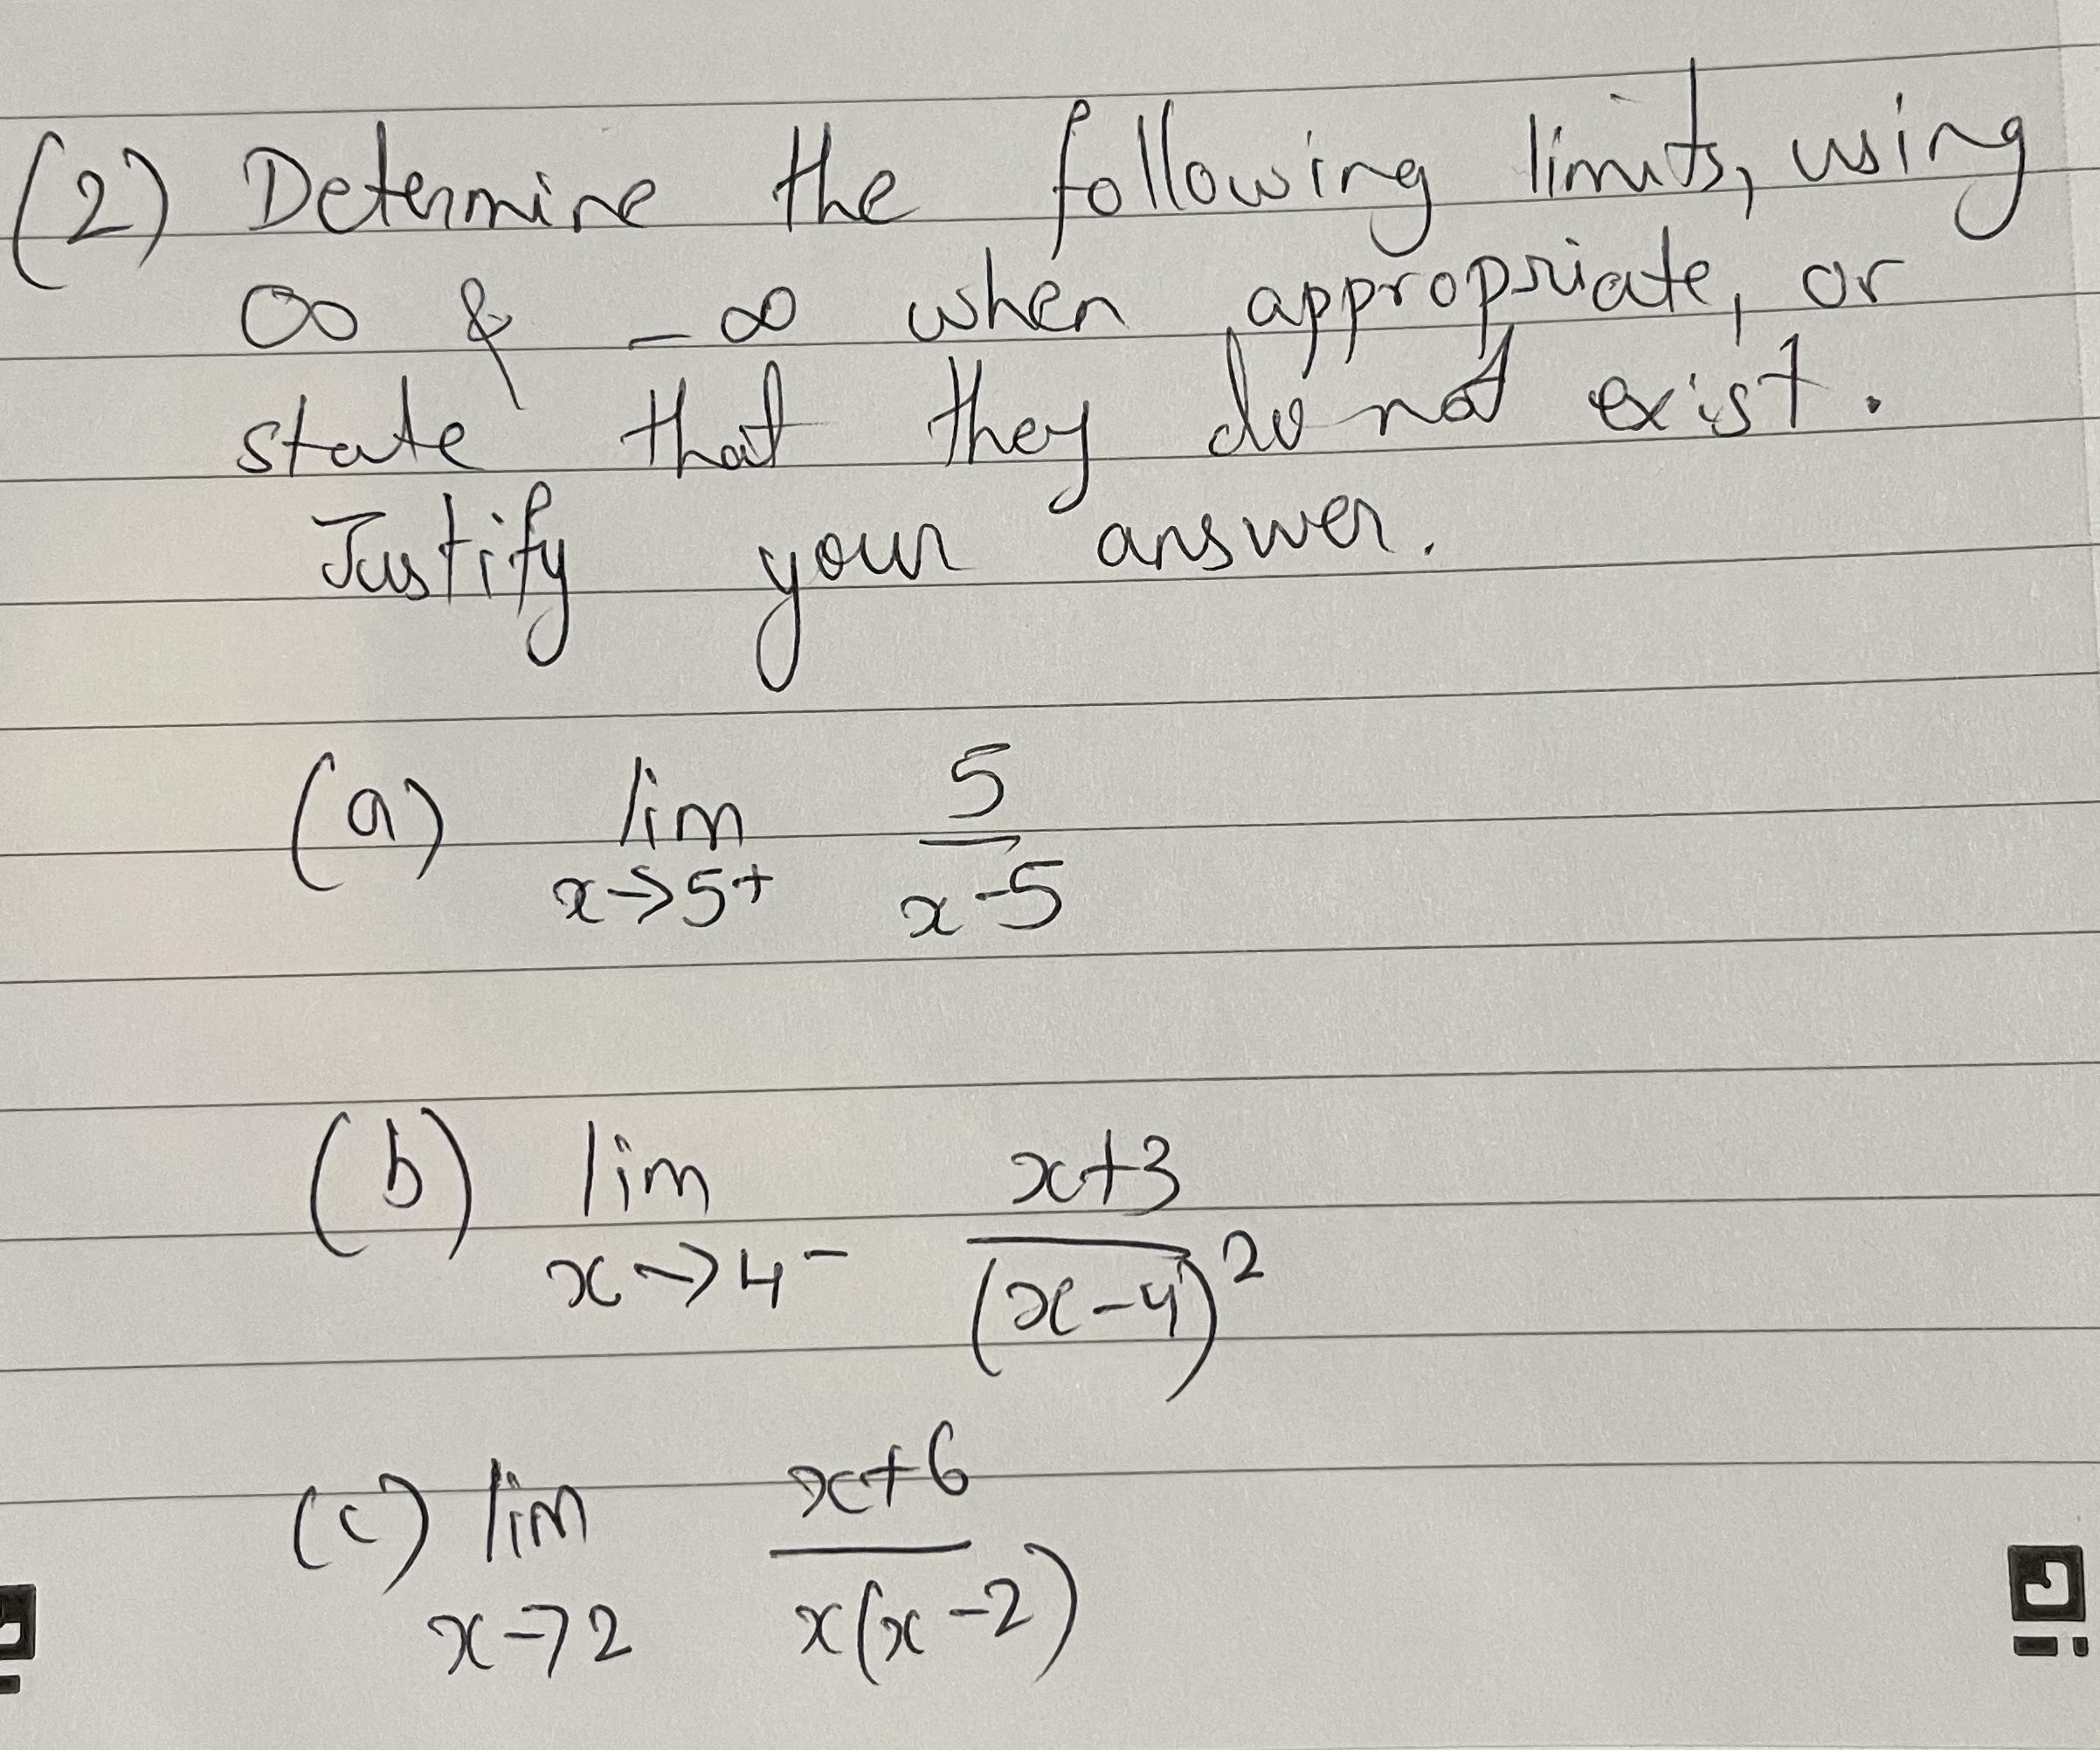 (2) Determine the following limits, using
∞ & -∞ when appropriate, or
state that they do not exist.
Justify your answer.
(a) lim x→5+ 5/(x-5)
(b) lim x→4- (x+3)/(x-4)²
(c) lim x→2 (x+6)/(x(x-2))